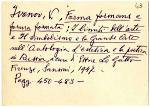 63
Ivanov, V. Forma formans e
forma formata; I limiti dell'arte
e Il simbolismo e la Grande Arte
sull'Antologia d'estetica e la poetica
in Russia, cura di Ettore Lo Gatto
Firenze, Sansoni, 1947.
Pagg. 450-483-